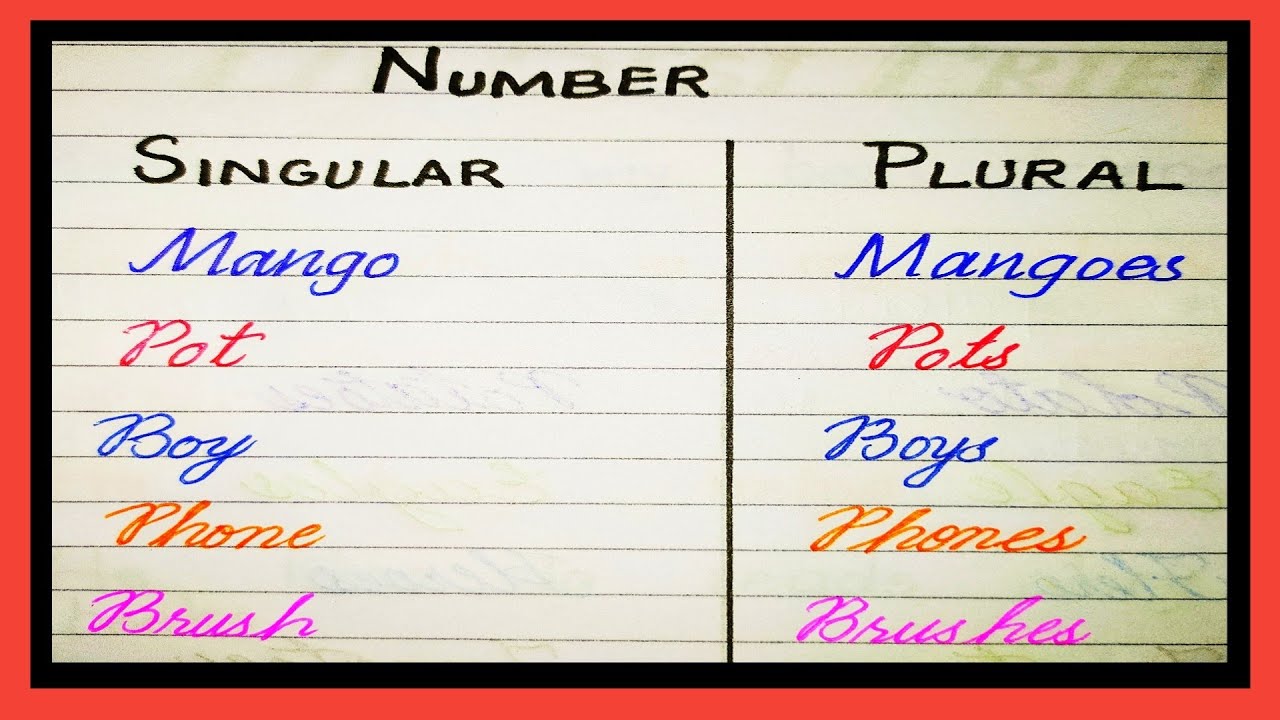 NUMBER
SINGULAR PLURAL
Mango Mangoes
Pot Pots
Boy Boys
Phone Phones
Brush Brushes